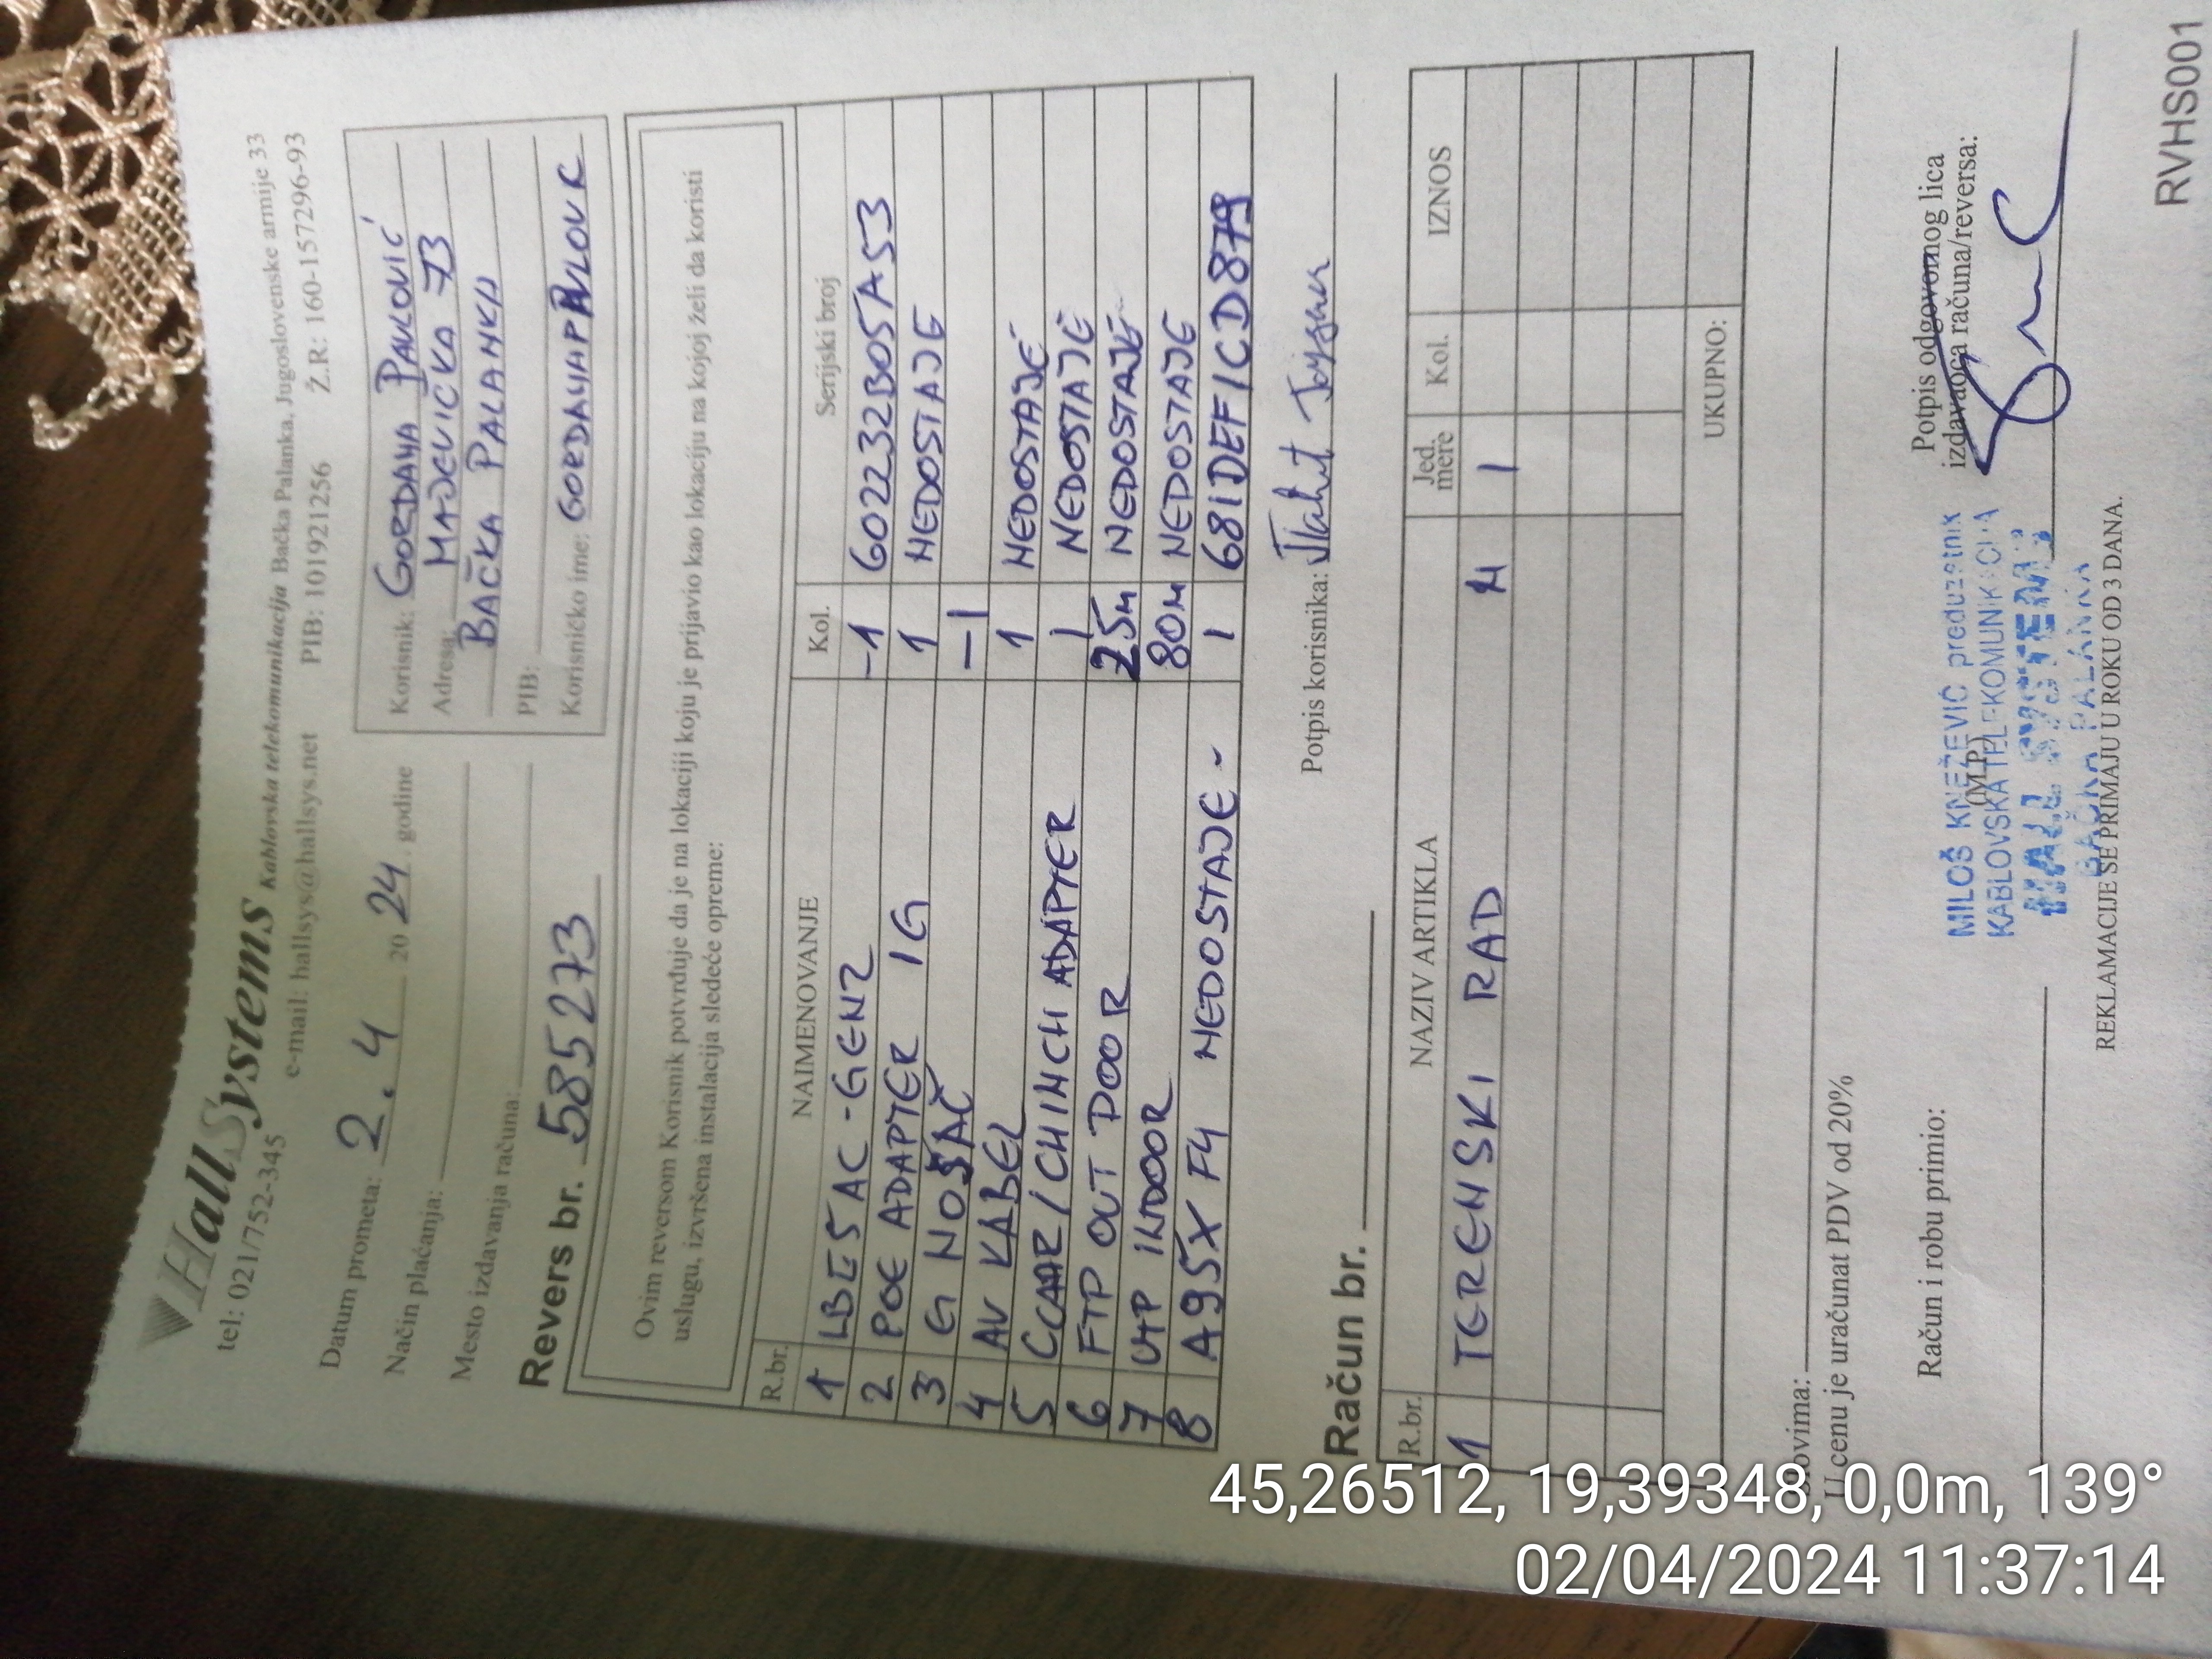 HallSystems Kablovska telekomunikacija Bačka Palanka, Jugoslovenske armije 33
tel: 021/752-345 e-mail: hallsys@hallsys.net PIB: 101921256 Ž.R: 160-157296-93
Datum prometa: 2. 4 20 24. godine
Način plaćanja:
Mesto izdavanja računa:
Revers br. 585273
Korisnik: GORDANA PAVLOVIĆ
Adresa: MAJEVIČKA 73
BAČKA PALANKA
PIB:
Korisničko ime: GORDANAPAVLOVIC
Ovim reversom Korisnik potvrđuje da je na lokaciji koju je prijavio kao lokaciju na kojoj želi da koristi
uslugu, izvršena instalacija sledeće opreme:
R.br. NAIMENOVANJE Kol. Serijski broj
1 LBE5AC-GEN2 -1 602232B05A53
2 POE ADAPTER 1G 1 NEDOSTAJE
3 G NOSAČ -1
4 AV KABEL 1 NEDOSTAJE
5 /CHINCH ADAPTER 1 NEDOSTAJE
6 FTP OUT DOOR 25m NEDOSTAJE
7 UTP INDOOR 80m NEDOSTAJE
8 A95X F4 NEDOSTAJE - 1 681DEF1CD879
Potpis korisnika:
Račun br.
R.br. NAZIV ARTIKLA Jed. mere Kol. IZNOS
1 TERENSKI RAD H 1
UKUPNO:
Slovima:
U cenu je uračunat PDV od 20%
Račun i robu primio:
(M.P.)
Potpis odgovornog lica
izdavaoca računa/reversa:
MILOŠ KNEŽEVIĆ preduzetnik
KABLOVSKA TELEKOMUNIKACIJA
HALL SYSTEMS
BAČKA PALANKA
REKLAMACIJE SE PRIMAJU U ROKU OD 3 DANA.
RVHS001
45,26512, 19,39348, 0,0m, 139°
02/04/2024 11:37:14